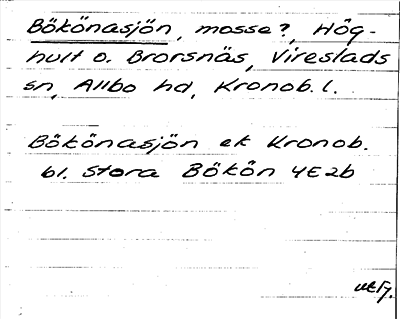 Bökönasjön, mosse?, Hög-
hult o. Brorsnäs, Vireslads
sn, Allbo hd, Kronob. l.
Bökönasjön ek Kronob.
bl. Stora Bökön 4E2b